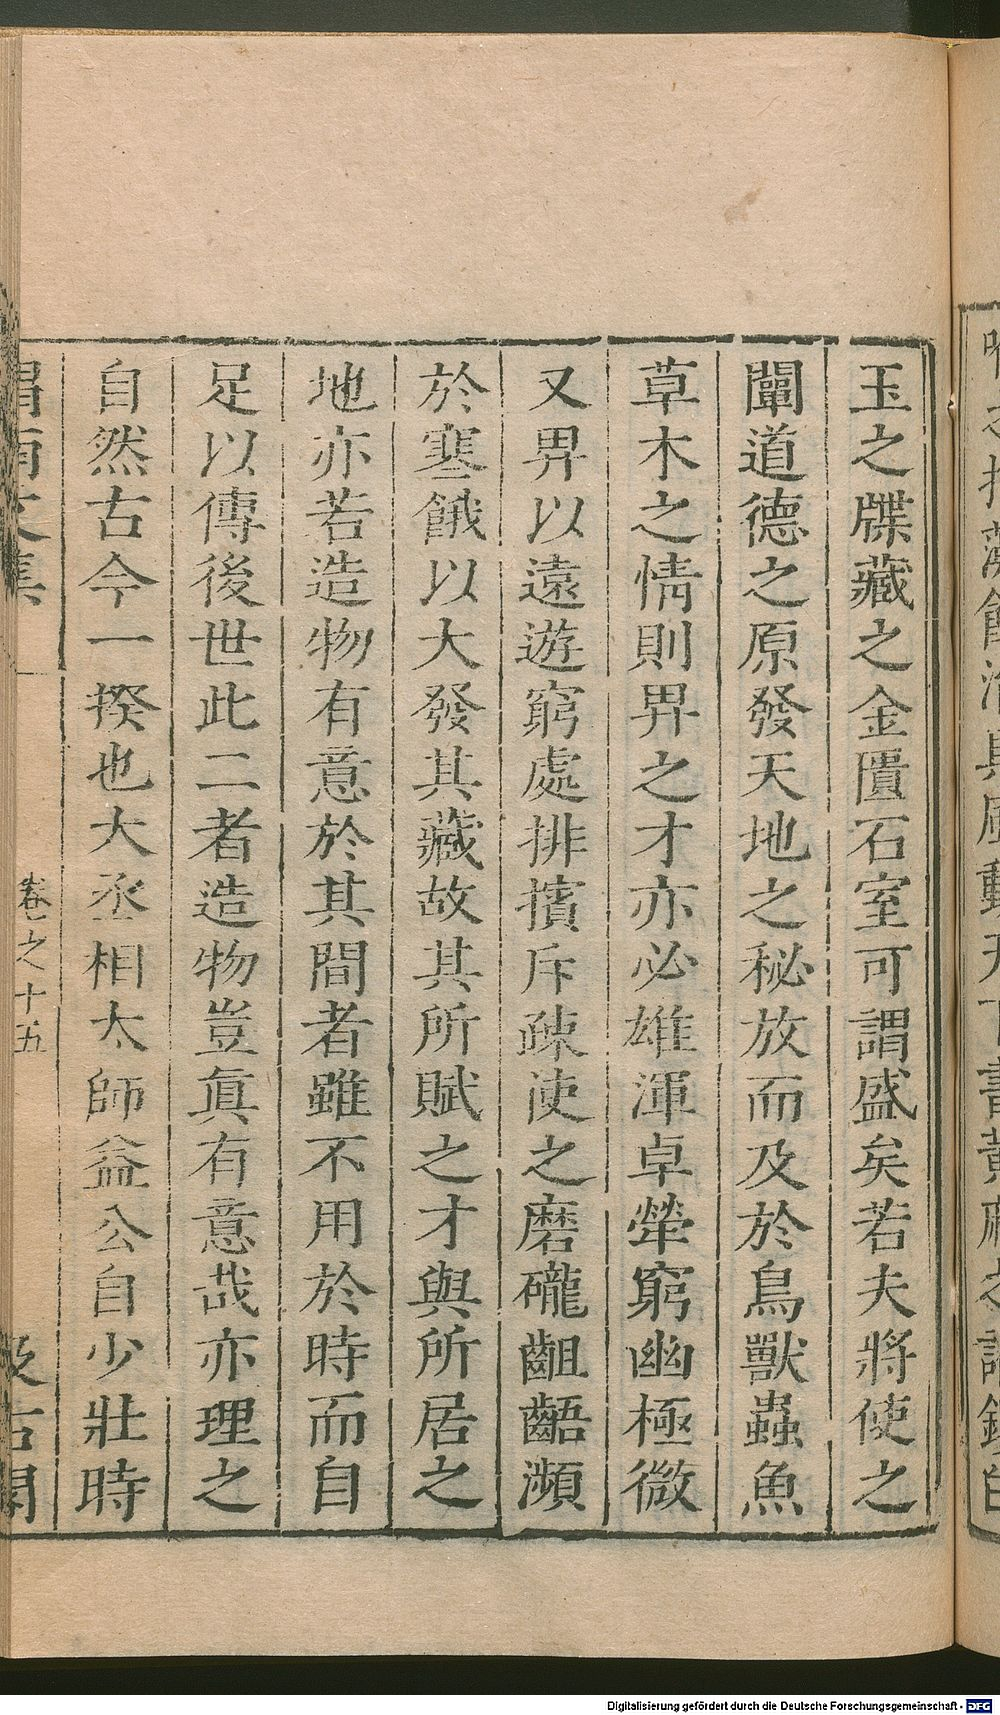 玉之牒藏之金匱石室可謂盛矣若夫將使之
闡道德之原發天地之秘放而及於鳥獸蟲魚
草木之情則畀之才亦必雄渾卓犖窮幽極微
又畀以遠遊窮處排擯斥疎使之磨礲齟齬瀕
於寒餓以大發其藏故其所賦之才與所居之
地亦若造物有意於其間者雖不用於時而自
足以傳後世此二者造物豈眞有意哉亦理之
自然古今一揆也大丞相太師益公自少壯時
渭南文集
卷之十五
汲古閣
Digitalisierung gefördert durch die Deutsche Forschungsgemeinschaft - DFG